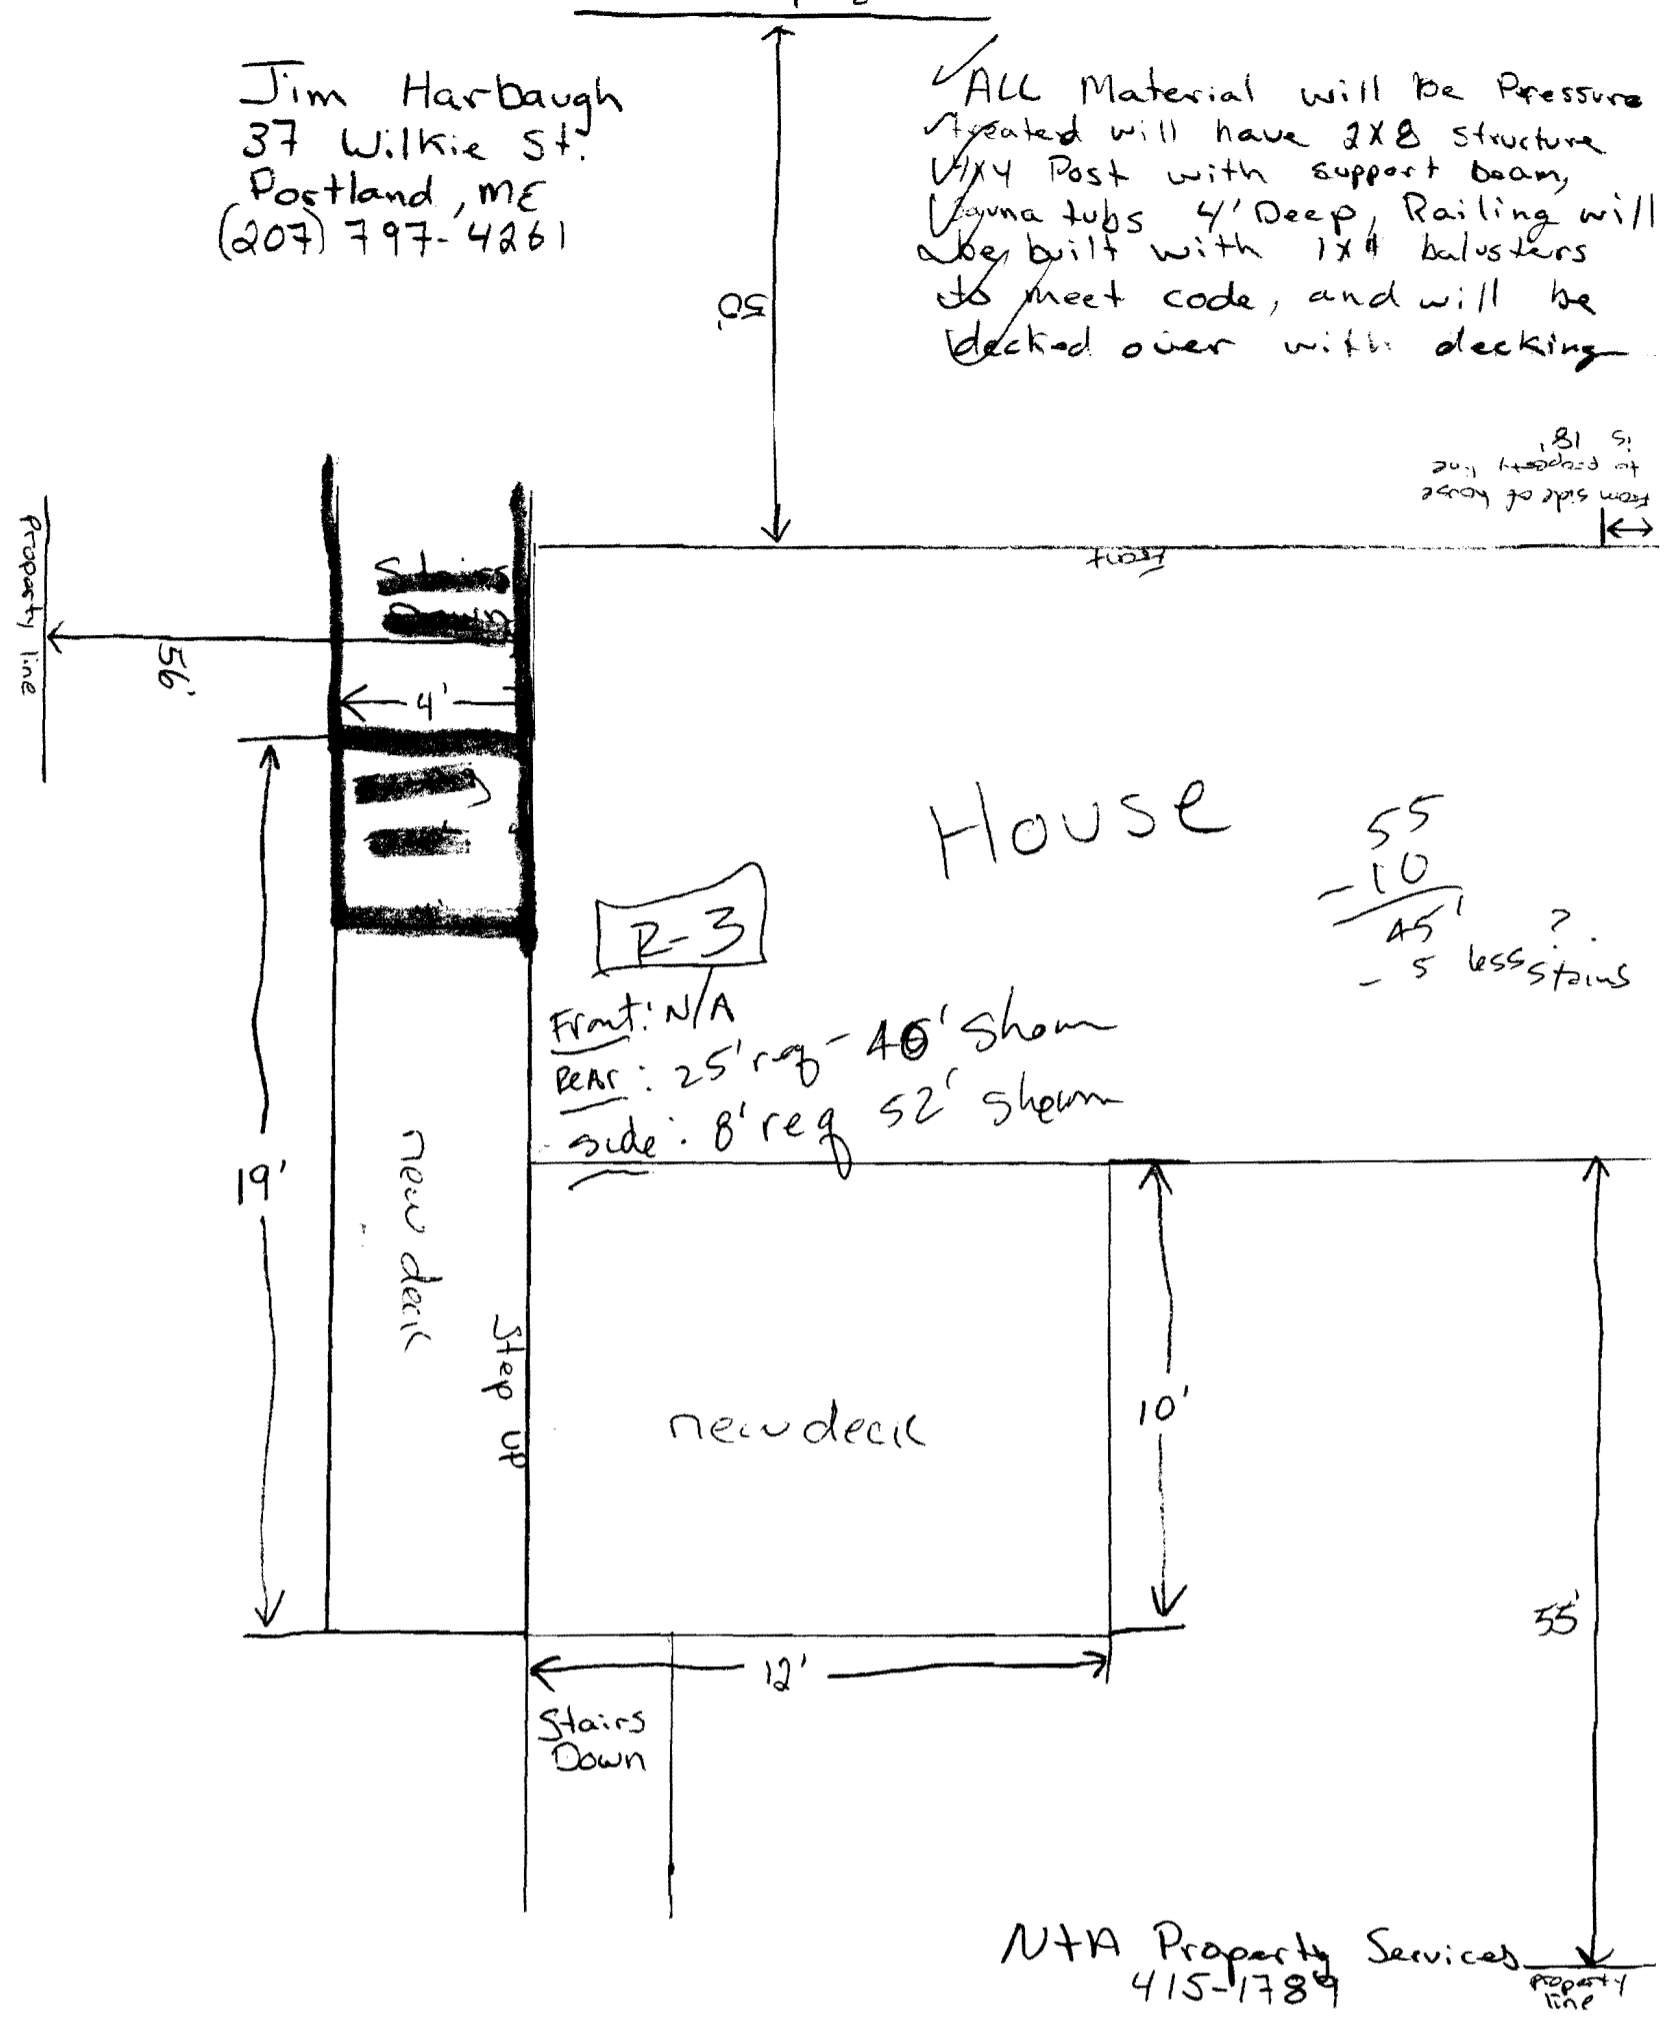 Jim Harbaugh
37 Wilkie St.
Portland, ME
(207) 797-4261
ALL Material will be Pressure
treated will have 2x8 structure
4x4 Post with support beam,
tubs 4' Deep, Railing will
be built with 1x4 balusters
to meet code, and will be
decked over with decking
50'
from side of house
to Property line
is 18'
Front
Property line
56'
Stairs
4'
House
55
-10
45'
- 5 less stairs ?
R-3
Front: N/A
Rear: 25' req - 40' shown
side: 8' req 52' shown
19'
new deck
Step up
new deck
10'
12'
55'
Stairs
Down
N+A Property Services
415-1789
property
line